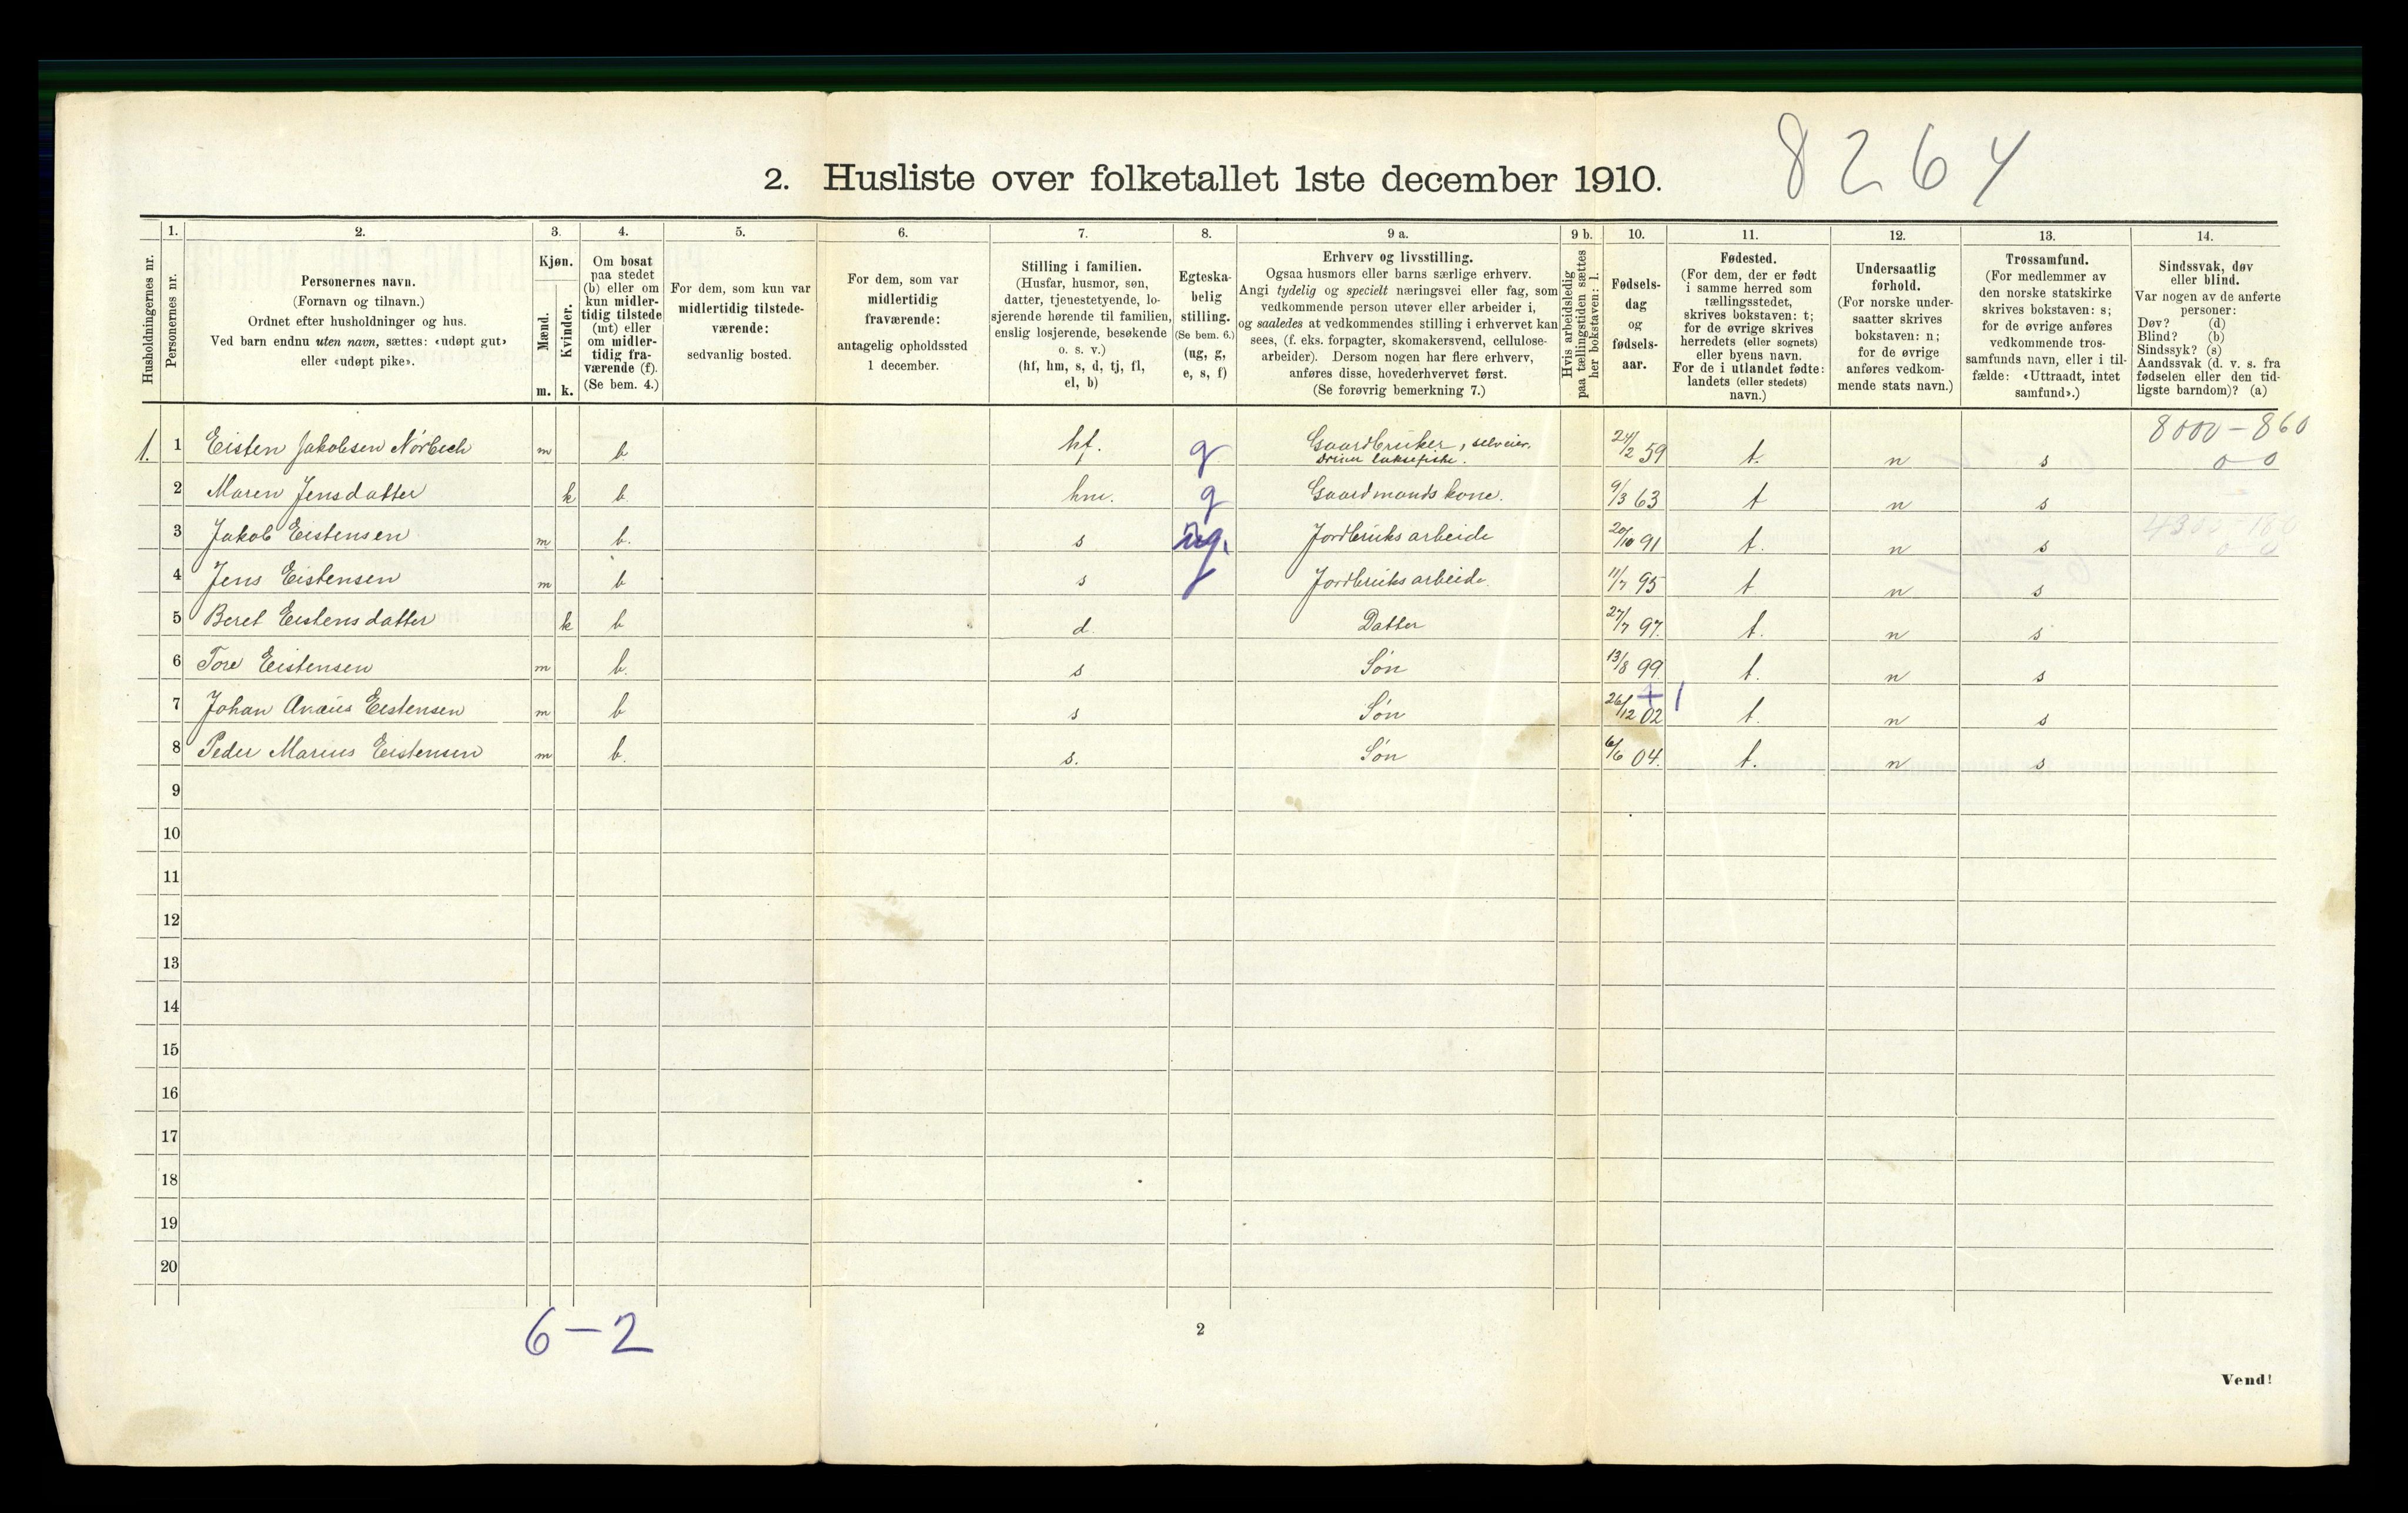 8264
2. Husliste over folketallet 1ste december 1910.
Husholdningernes nr.
1. Personernes nr.
2. Personernes navn.
(Fornavn og tilnavn.)
Ordnet efter husholdninger og hus.
Ved barn endnu uten navn, sættes: «udøpt gut»
eller «udøpt pike».
3. Kjøn.
Mænd. m.
Kvinder. k.
4. Om bosat
paa stedet
(b) eller om
kun midler-
tidig tilstede
(mt) eller
om midler-
tidig fra-
værende (f).
(Se bem. 4.)
5. For dem, som kun var
midlertidig tilstede-
værende:
sedvanlig bosted.
6. For dem, som var
midlertidig
fraværende:
antagelig opholdssted
1 december.
7. Stilling i familien.
(Husfar, husmor, søn,
datter, tjenestetyende, lo-
sjerende hørende til familien,
enslig losjerende, besøkende
o. s. v.)
(hf, hm, s, d, tj, fl,
el, b)
8. Egteska-
belig
stilling.
(Se bem. 6.)
(ug, g,
e, s, f)
9 a. Erhverv og livsstilling.
Ogsaa husmors eller barns særlige erhverv.
Angi tydelig og specielt næringsvei eller fag, som
vedkommende person utøver eller arbeider i,
og saaledes at vedkommendes stilling i erhvervet kan
sees, (f. eks. forpagter, skomakersvend, cellulose-
arbeider). Dersom nogen har flere erhverv,
anføres disse, hovederhvervet først.
(Se forøvrig bemerkning 7.)
9 b. Hvis arbeidsledig
paa tællingstiden sættes
her bokstaven: l.
10. Fødsels-
dag
og
fødsels-
aar.
11. Fødested.
(For dem, der er født
i samme herred som
tællingsstedet,
skrives bokstaven: t;
for de øvrige skrives
herredets (eller sognets)
eller byens navn.
For de i utlandet fødte:
landets (eller stedets)
navn.)
12. Undersaatlig
forhold.
(For norske under-
saatter skrives
bokstaven: n;
for de øvrige
anføres vedkom-
mende stats navn.)
13. Trossamfund.
(For medlemmer av
den norske statskirke
skrives bokstaven: s;
for de øvrige anføres
vedkommende tros-
samfunds navn, eller i til-
fælde: «Uttraadt, intet
samfund».)
14. Sindssvak, døv
eller blind.
Var nogen av de anførte
personer:
Døv? (d)
Blind? (b)
Sindssyk? (s)
Aandssvak (d. v. s. fra
fødselen eller den tid-
ligste barndom)? (a)
8000 – 860
1. 1 Eisten Jakobsen Nörbech m b hf. g Gaardbruker, selveier, 24/2 59 t. n s 0 0
driver laksefiske.
2 Maren Jensdatter k b. hm. g Gaardmands kone. 9/3 63 t n s
3 Jakob Eistensen m b. s ug. Jordbruksarbeide 20/10 91 t. n s
4 Jens Eistensen m b s Jordbruksarbeide 11/7 95 t n s
5 Beret Eistensdatter k b d. Datter 27/7 97. t. n s
6 Tore Eistensen m b. s Søn 13/8 99 t. n s
7 Johan Eistensen m b s Søn 26/12 02 + 1 t. n s
8 Peder Marius Eistensen m b. s. Søn 6/6 04. t. n s
9
10
11
12
13
14
15
16
17
18
19
20
6 – 2
2
Vend!